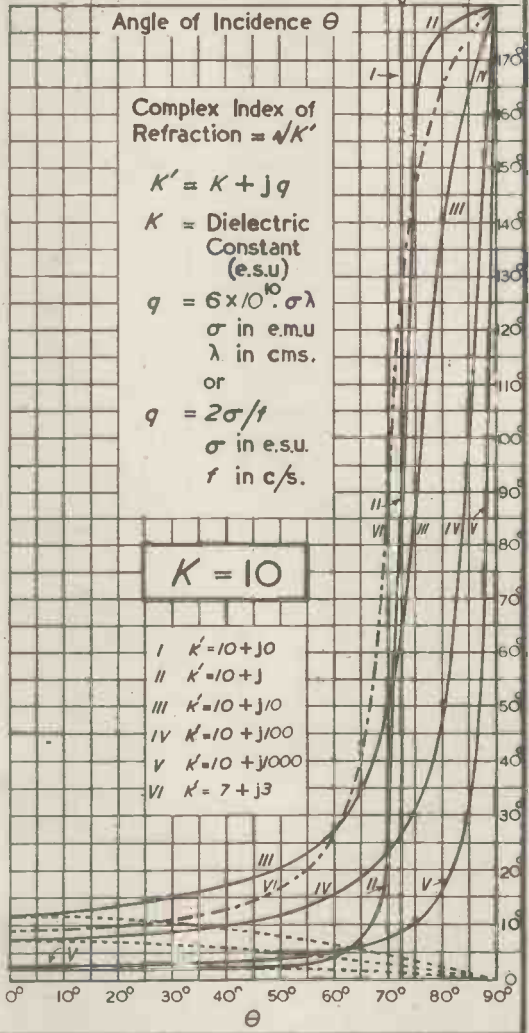 Angle of Incidence θ
Complex Index of
Refraction = √K'
K' = K + jq
K = Dielectric
Constant
(e.s.u)
q = 6×10¹⁰. σλ
σ in e.m.u
λ in cms.
or
q = 2σ/f
σ in e.s.u.
f in c/s.
K = 10
I K'=10+j0
II K'=10+j
III K'=10+j10
IV K'=10+j100
V K'=10+j1000
VI K'= 7+j3
II
I
IV
III
II
VI
III
IV
V
III
VI
IV
II
V
V
170°
160°
150°
140°
130°
120°
110°
100°
90°
80°
70°
60°
50°
40°
30°
20°
10°
0
0° 10° 20° 30° 40° 50° 60° 70° 80° 90°
θ